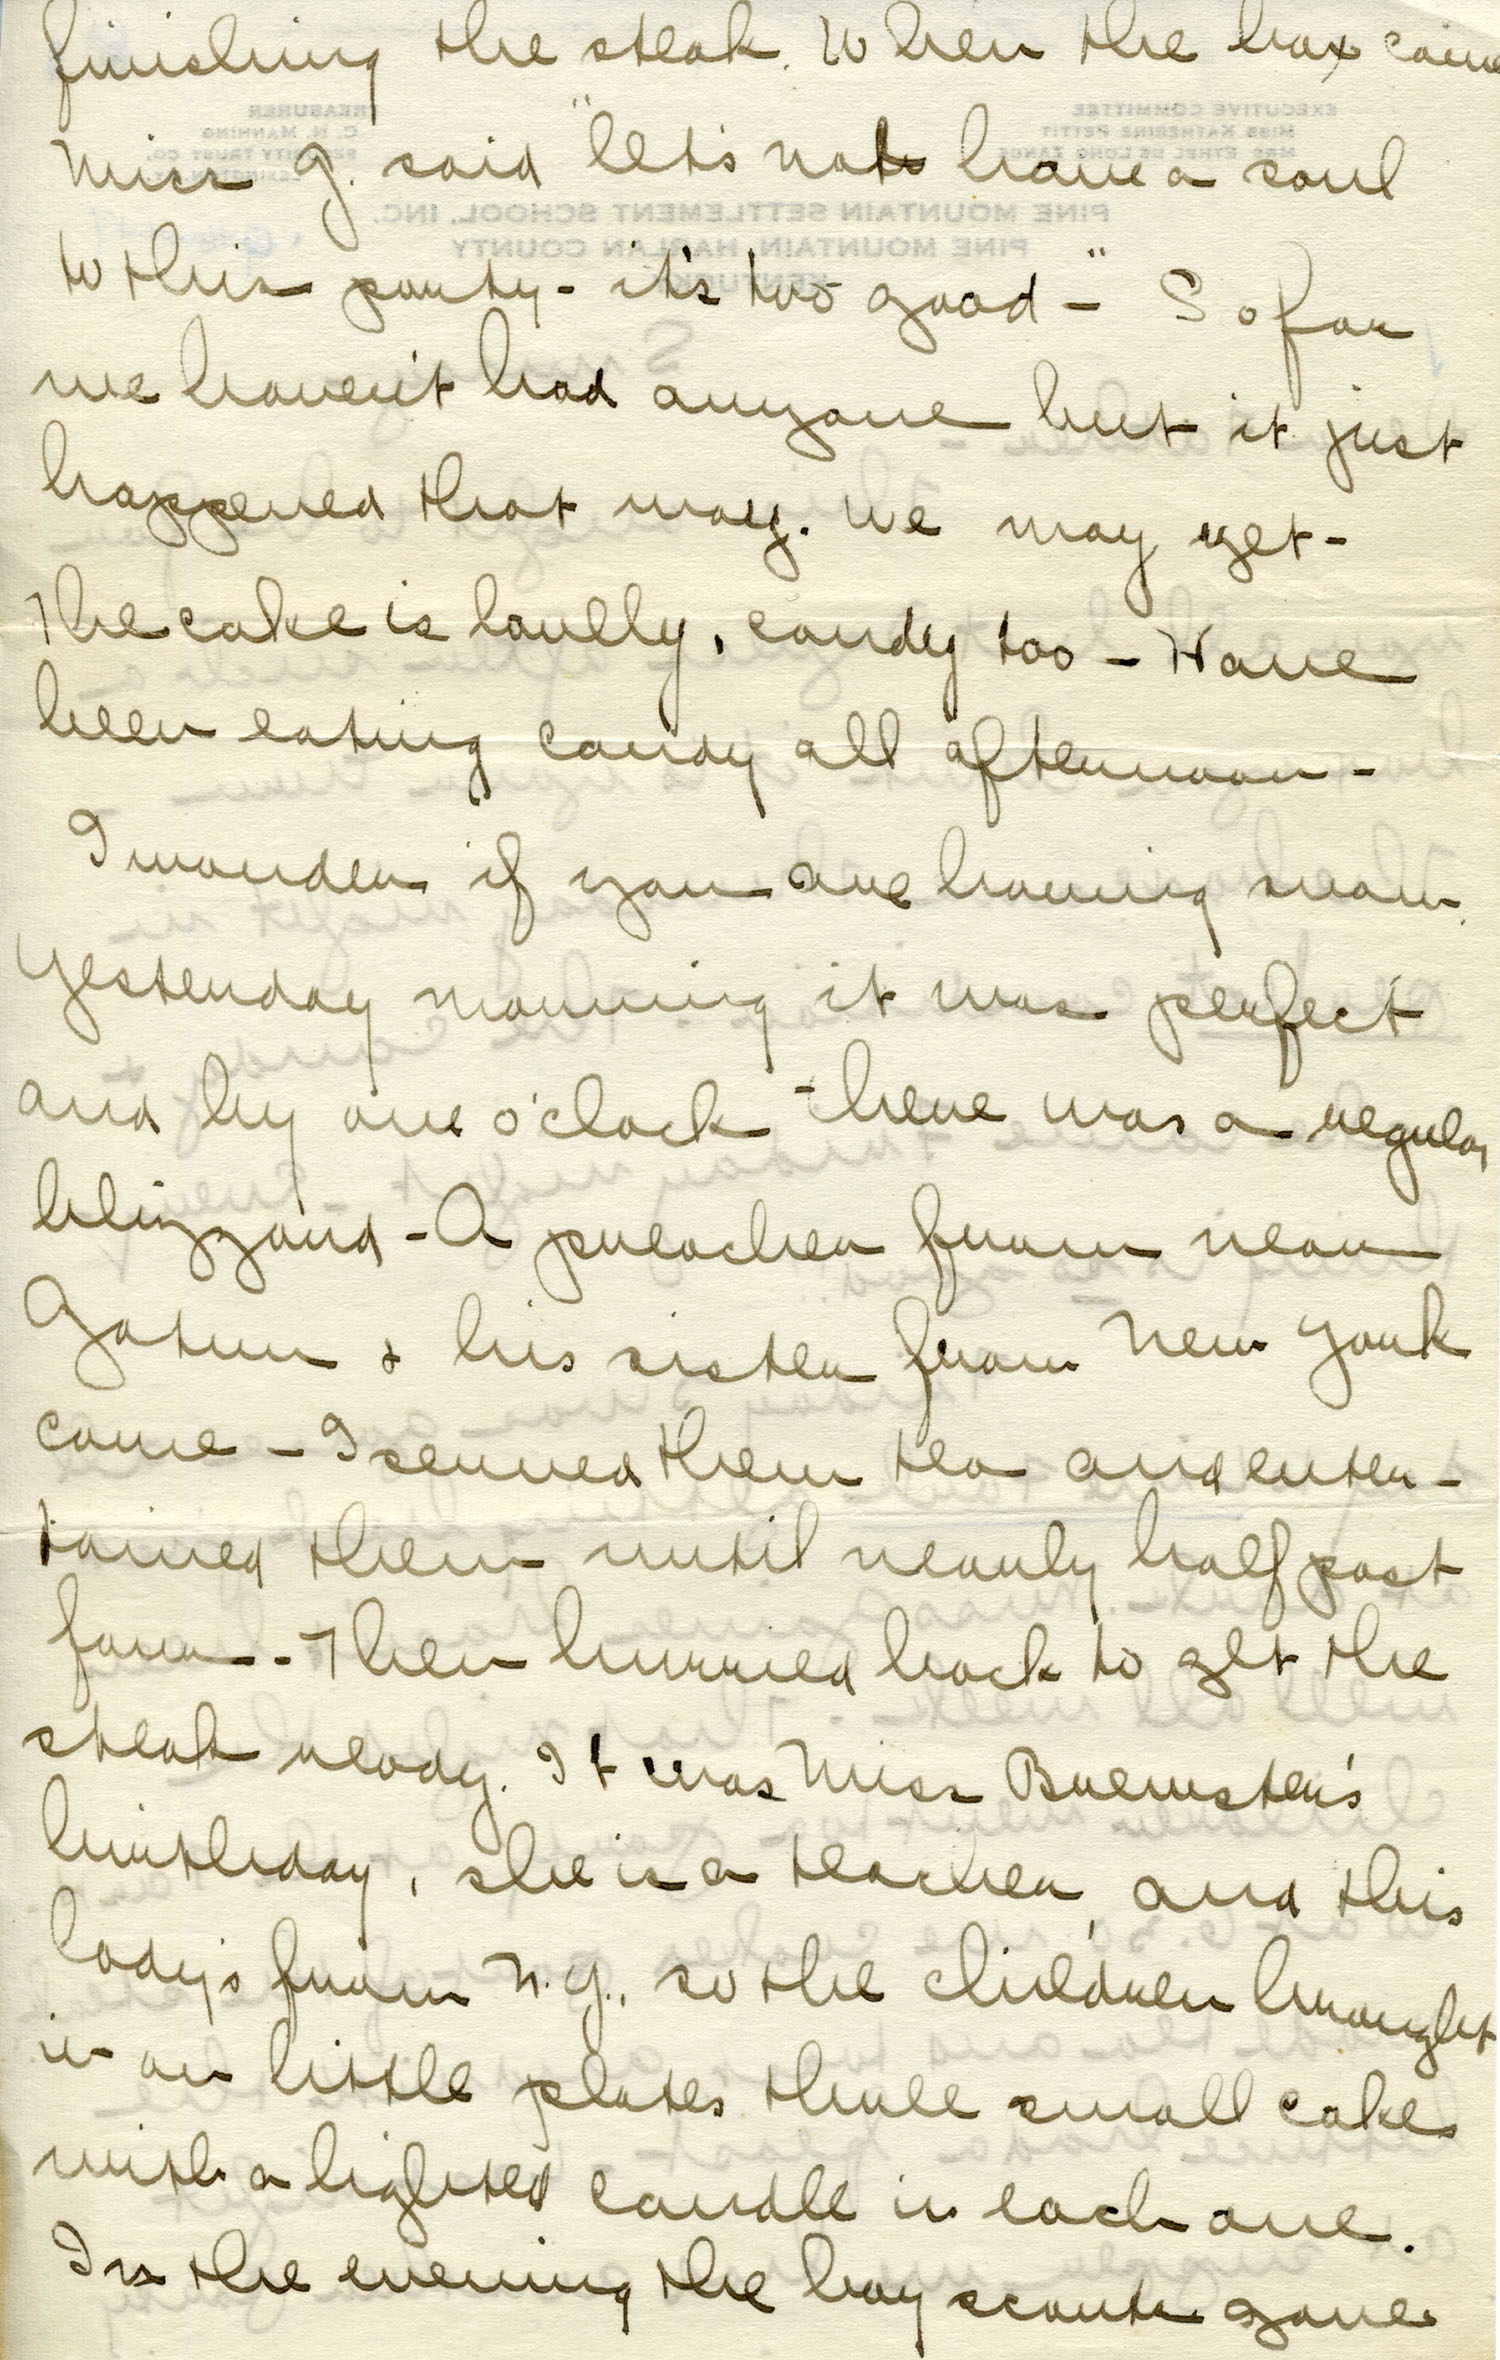 finishing the steak. When the box came
Miss G. said "let's not have a soul
to this party - it's too good -" So far
we haven't had anyone but it just
happened that way. We may yet -
The cake is lovely, candy too - Have
been eating candy all afternoon -
I wonder if you are having snow.
Yesterday morning it was perfect
and by one o'clock there was a regular
blizzard - A preacher from near
Gatun & his sister from New York
came - I served them tea and enter-
tained them until nearly half past
four - Then hurried back to get the
steak ready. It was Miss Brewster's
birthday, she is a teacher, and this
lady's from N.Y., so the children brought
in on little plates three small cakes
with a lighted candle in each one.
In the evening the boy scouts gave